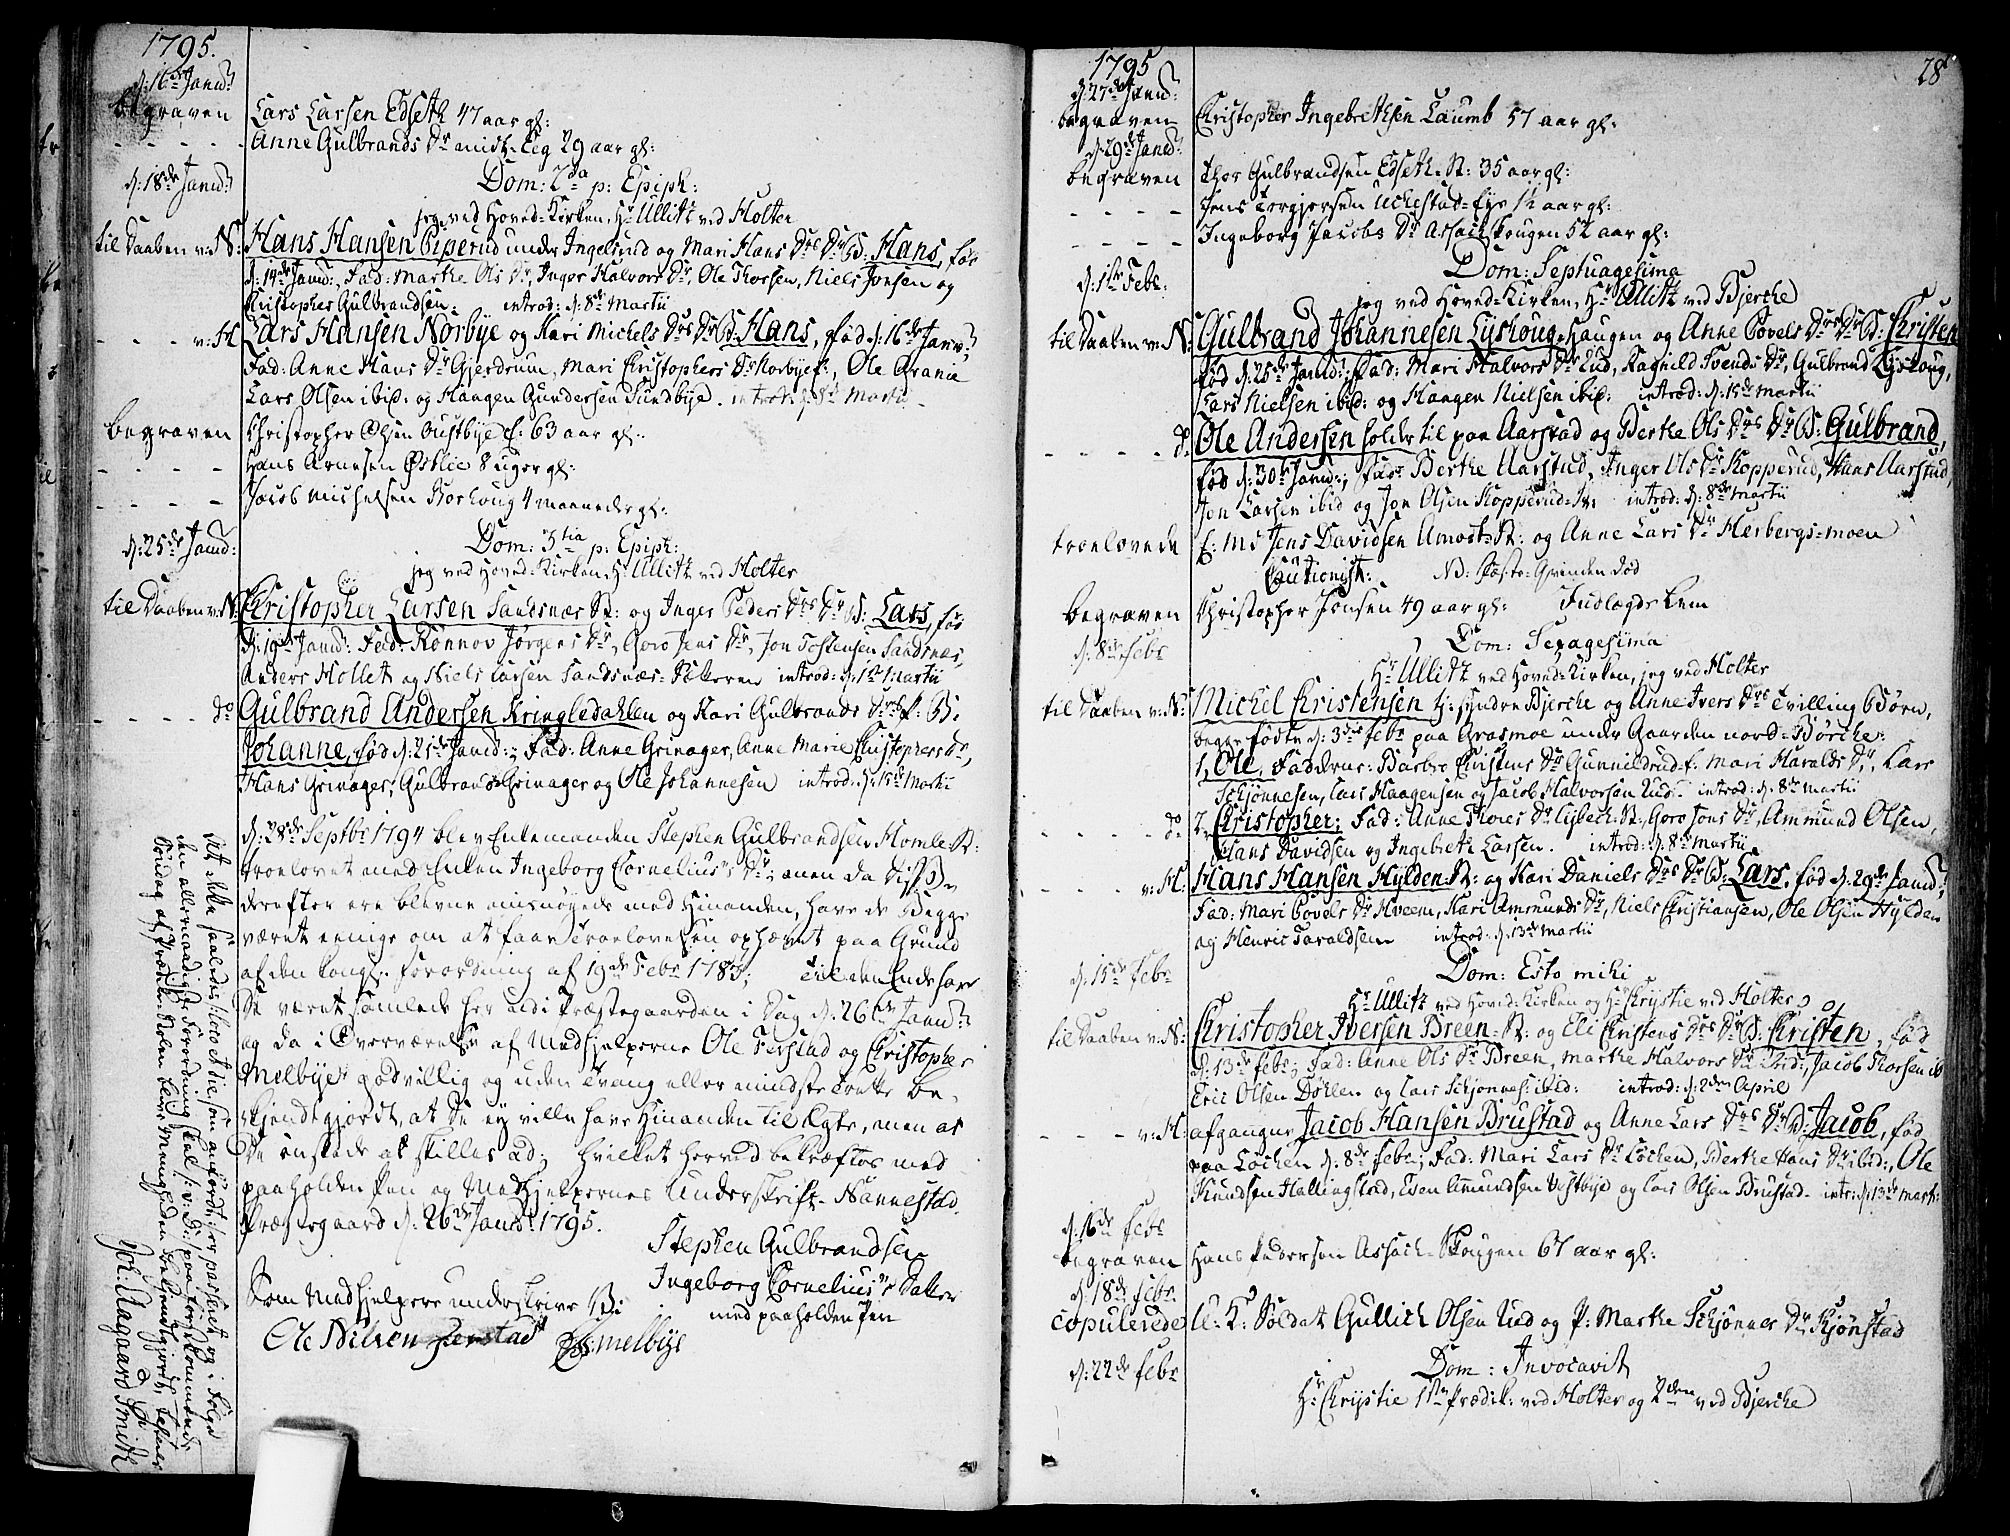 1795.
d: 16de Janu:
begraven Lars Larsen Edseth 47 aar gl:
- - - - Anne Gulbrands Dr Eeg 29 aar gl:
d: 18de Janu: Dom: 2da p: Epiph:
jeg ved Hoved-Kirken, Hr Ullitz ved Holter
til Daaben v: N: Hans Hansen Piperud under Ingelsrud og Mari Hans Drs Dr B: Hans, fød
d: 14de Janu:, Fad: Marthe Ols Dr, Inger Halvors Dr, Ole Thorsen, Niels Jonsen og
Christopher Gulbrandsen. introd: d: 8de Martii
- - - - v: H Lars Hansen Norbye og Kari Michels Drs Dr B: Hans, fød d: 16de Janu:,
Fad: Anne Hans Dr Gjerdrum, Mari Christophers Dr Norbye, Ole
Lars Olsen ibid: og Haagen Gundersen Sundbye. introd: d: 8de Martii
begraven Christopher Olsen 63 aar gl:
- - - - Hans Arnesen Østlie 8 uger gl:
- - - Jacob Michelsen 4 maaneder gl:
d: 25de Janu: Dom: 3tia p: Epiph:
jeg ved Hoved-Kirken, Hr Ullitz ved Holter
til Daaben v: N: Christopher Larsen Sandsnæs og Inger Peders Drs Dr B: Lars, fød
d: 19de Janu: Fad: Rønnov Jørgens Dr, Goro Jens Dr, Jon Tostensen Sandsnæs,
Anders Hollet og Niels Larsen Sandsnæs introd: d: 1ste Martii
- - - - do Gulbrand Andersen Kringledahlen og Kari Gulbrands Drs P: B:
Johanne, fød d: 21de Janu:; Fad: Anne Grinager, Anne Marie Christophers Dr,
Hans Grinager, Gulbrand Grinager og Ole Johannesen introd: d: 15de Martii
d: 28de Septbr 1794 blev Enkemanden Stephen Gulbrandsen Homle
troelovet med Enken Ingeborg Cornelius's Dr; men da disse
derefter ere blevne misnøyede med Hinanden, have de Begge
været eenige om at faae Troelovelsen ophævet paa Grund
af den kongl: Forordning af 19de Febr 1783; Til den Ende have
De været samlede her udi Præstegaarden i Dag d: 26de Janu:
og da i Overværelse af Medhjelperne Ole Ferstad og Christopher
Melbye godvillig og uden Tvang eller mindste Trette be-
kjendtgjordt, at De ey ville have Hinanden til Ægte, men at
De ønskede at skilles ad; hvilket herved bekræftes med
paaholden Pen og Medhjelpernes Underskrift. Nannestad
Præstegaard d: 26de Janu: 1795.
Stephen Gulbrandsen
Ingeborg Cornelius's Datter
med paaholden Pen
Som Medhjelpere underskrive Vi
Ole Nilsen Ferstad Melbye
At dette saaledes som anført er passeret og i Følge
den allernaadigste Forordning skal paa første kommende
Søndag af Prædike-Stolen blive Menigheden bekjendtgjort, testerer
Joh: Aagaard Smith
1795 28
d: 27de Janu:
begraven Christopher Ingebrethsen Laumb 57 aar gl:
d: 29de Janu:
begraven Thor Gulbrandsen Edseth 35 aar gl:
- - - - Jens Torgjersen 1/2 aar gl:
- - - Ingeborg Jacobs Dr Assachskougen 52 aar gl:
d: 1ste Febr: Dom: Septuagesima
jeg ved Hoved-Kirken, Hr Ullitz ved Bjerche
til Daaben v: N: Gulbrand Johannesen Lyskoug-Haugen og Anne Povels Drs Dr B: Christen
fød d: 25de Janu:; Fad: Mari Halvors Dr Rud, Ragnild Svends Dr, Gulbrand Lyskoug,
Lars Nielsen ibid: og Haagen Nielsen ibid: introd: d: 15de Martii
- - - - do Ole Andersen holder til paa Aarstad og Berthe Ols Drs Dr B: Gulbrand,
fød d: 30te Janu:, Fad: Berthe Aarstad, Inger Ols Dr Kopperud, Hans Aarstad,
Jon Larsen ibid og Jon Olsen Kopperud introd: d: 8de Martii
troelovede E: M: Jens Davidsen Amost og Anne Lars Dr Herbergs-moen
Cautionist:
begraven Christopher Jonsen 49 aar gl: Indlægds Lem
d: 8de Febr Dom: Sexagesima
Hr Ullitz ved Hoved-Kirken, jeg ved Holter
til Daaben v: N: Michel Christensen Hr: Syndre Bjerche og Anne Ivers Drs Tvilling Børn,
begge fødte d: 3die Febr paa Grasmoe under Gaarden nord-Børche:
1, Ole, Fadderne: Barbro Christens Dr Gunnildrud, Mari Haralds Dr, Lars
Schjønnesen, Lars Haagensen og Jacob Halvorsen Rud introd: d: 8de Martii
- - - - do 2, Christopher; Fad: Anne Thores Dr Lybech, Goro Jons Dr, Ammund Olsen,
Hans Davidsen og Ingebreth Larsen. introd: d: 8de Martii
- - - - v: H: Hans Hansen Hylden og Kari Daniels Drs Dr B: Lars, fød d: 29de Janu:,
Fad: Mari Povels Dr Hveem, Kari Amunds Dr, Niels Christiansen, Ole Olsen Hylden
og Henric Taraldsen introd: d: 13de Martii
d: 15de Febr Dom: Esto mihi
Hr Ullitz ved Hoved-Kirken og Hr Chrystie ved Holter
til Daaben v: N: Christopher Iversen Breen og Eli Christens Drs Dr B: Christen, fød
d: 13de Febr; Fad: Anne Ols Dr Breen, Marthe Halvors Dr ibid:, Jacob Thorsen ib
Eric Olsen Dohlen og Lars Schjønnes: ibid: introd: d: 2den April
- - - v: H: afgangne Jacob Hansen Brustad og Anne Lars Drs Dr B: Jacob, fød
paa Løchen d: 8de Febr; Fad: Mari Lars Dr Løchen, Berthe Hans Dr ibid:, Ole
Knudsen Hallingstad, Even Amundsen Vestbye og Lars Olsen Brustad. intr: d: 13de Mart:
d: 16de Febr
begraven Hans Pedersen Assach-Skougen 67 aar gl:
d: 18de Febr
copulerede U: K: Soldat Gullich Olsen Rud og P: Marthe Schjønnes Dr Kjønstad
d: 22de Febr Dom: Invocavit
Hr Chrystie 1ste Prædik: ved Holter og 2den ved Bjerche